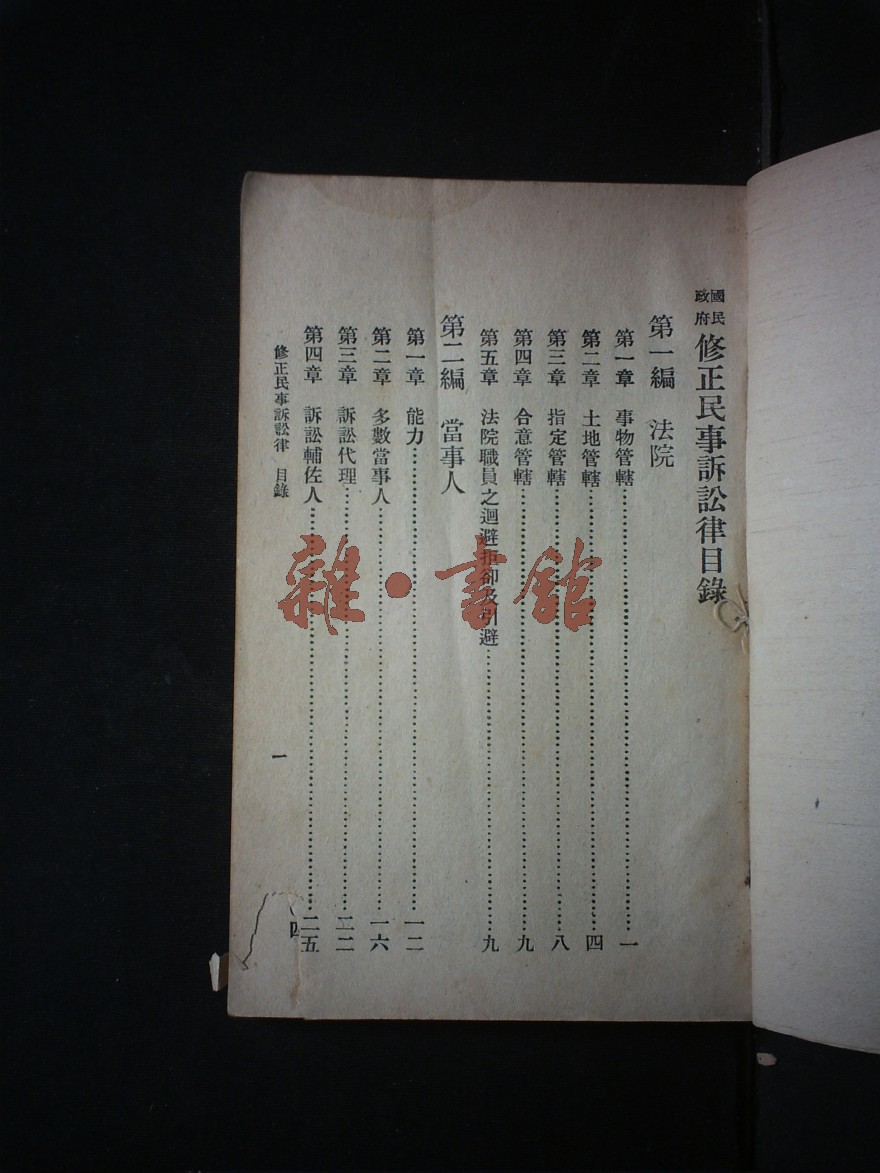 國民政府修正民事訴訟律目錄
第一編 法院
第一章 事物管轄……一
第二章 土地管轄……四
第三章 指定管轄……八
第四章 合意管轄……九
第五章 法院職員之迴避拒卻及引避……九
第二編 當事人
第一章 能力……一二
第二章 多數當事人……一六
第三章 訴訟代理……二二
第四章 訴訟輔佐人……二五
修正民事訴訟律 目錄
一
四
雜·書館